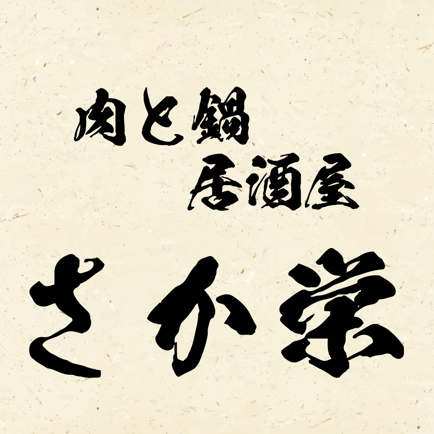 肉と鍋
居酒屋
さか栄